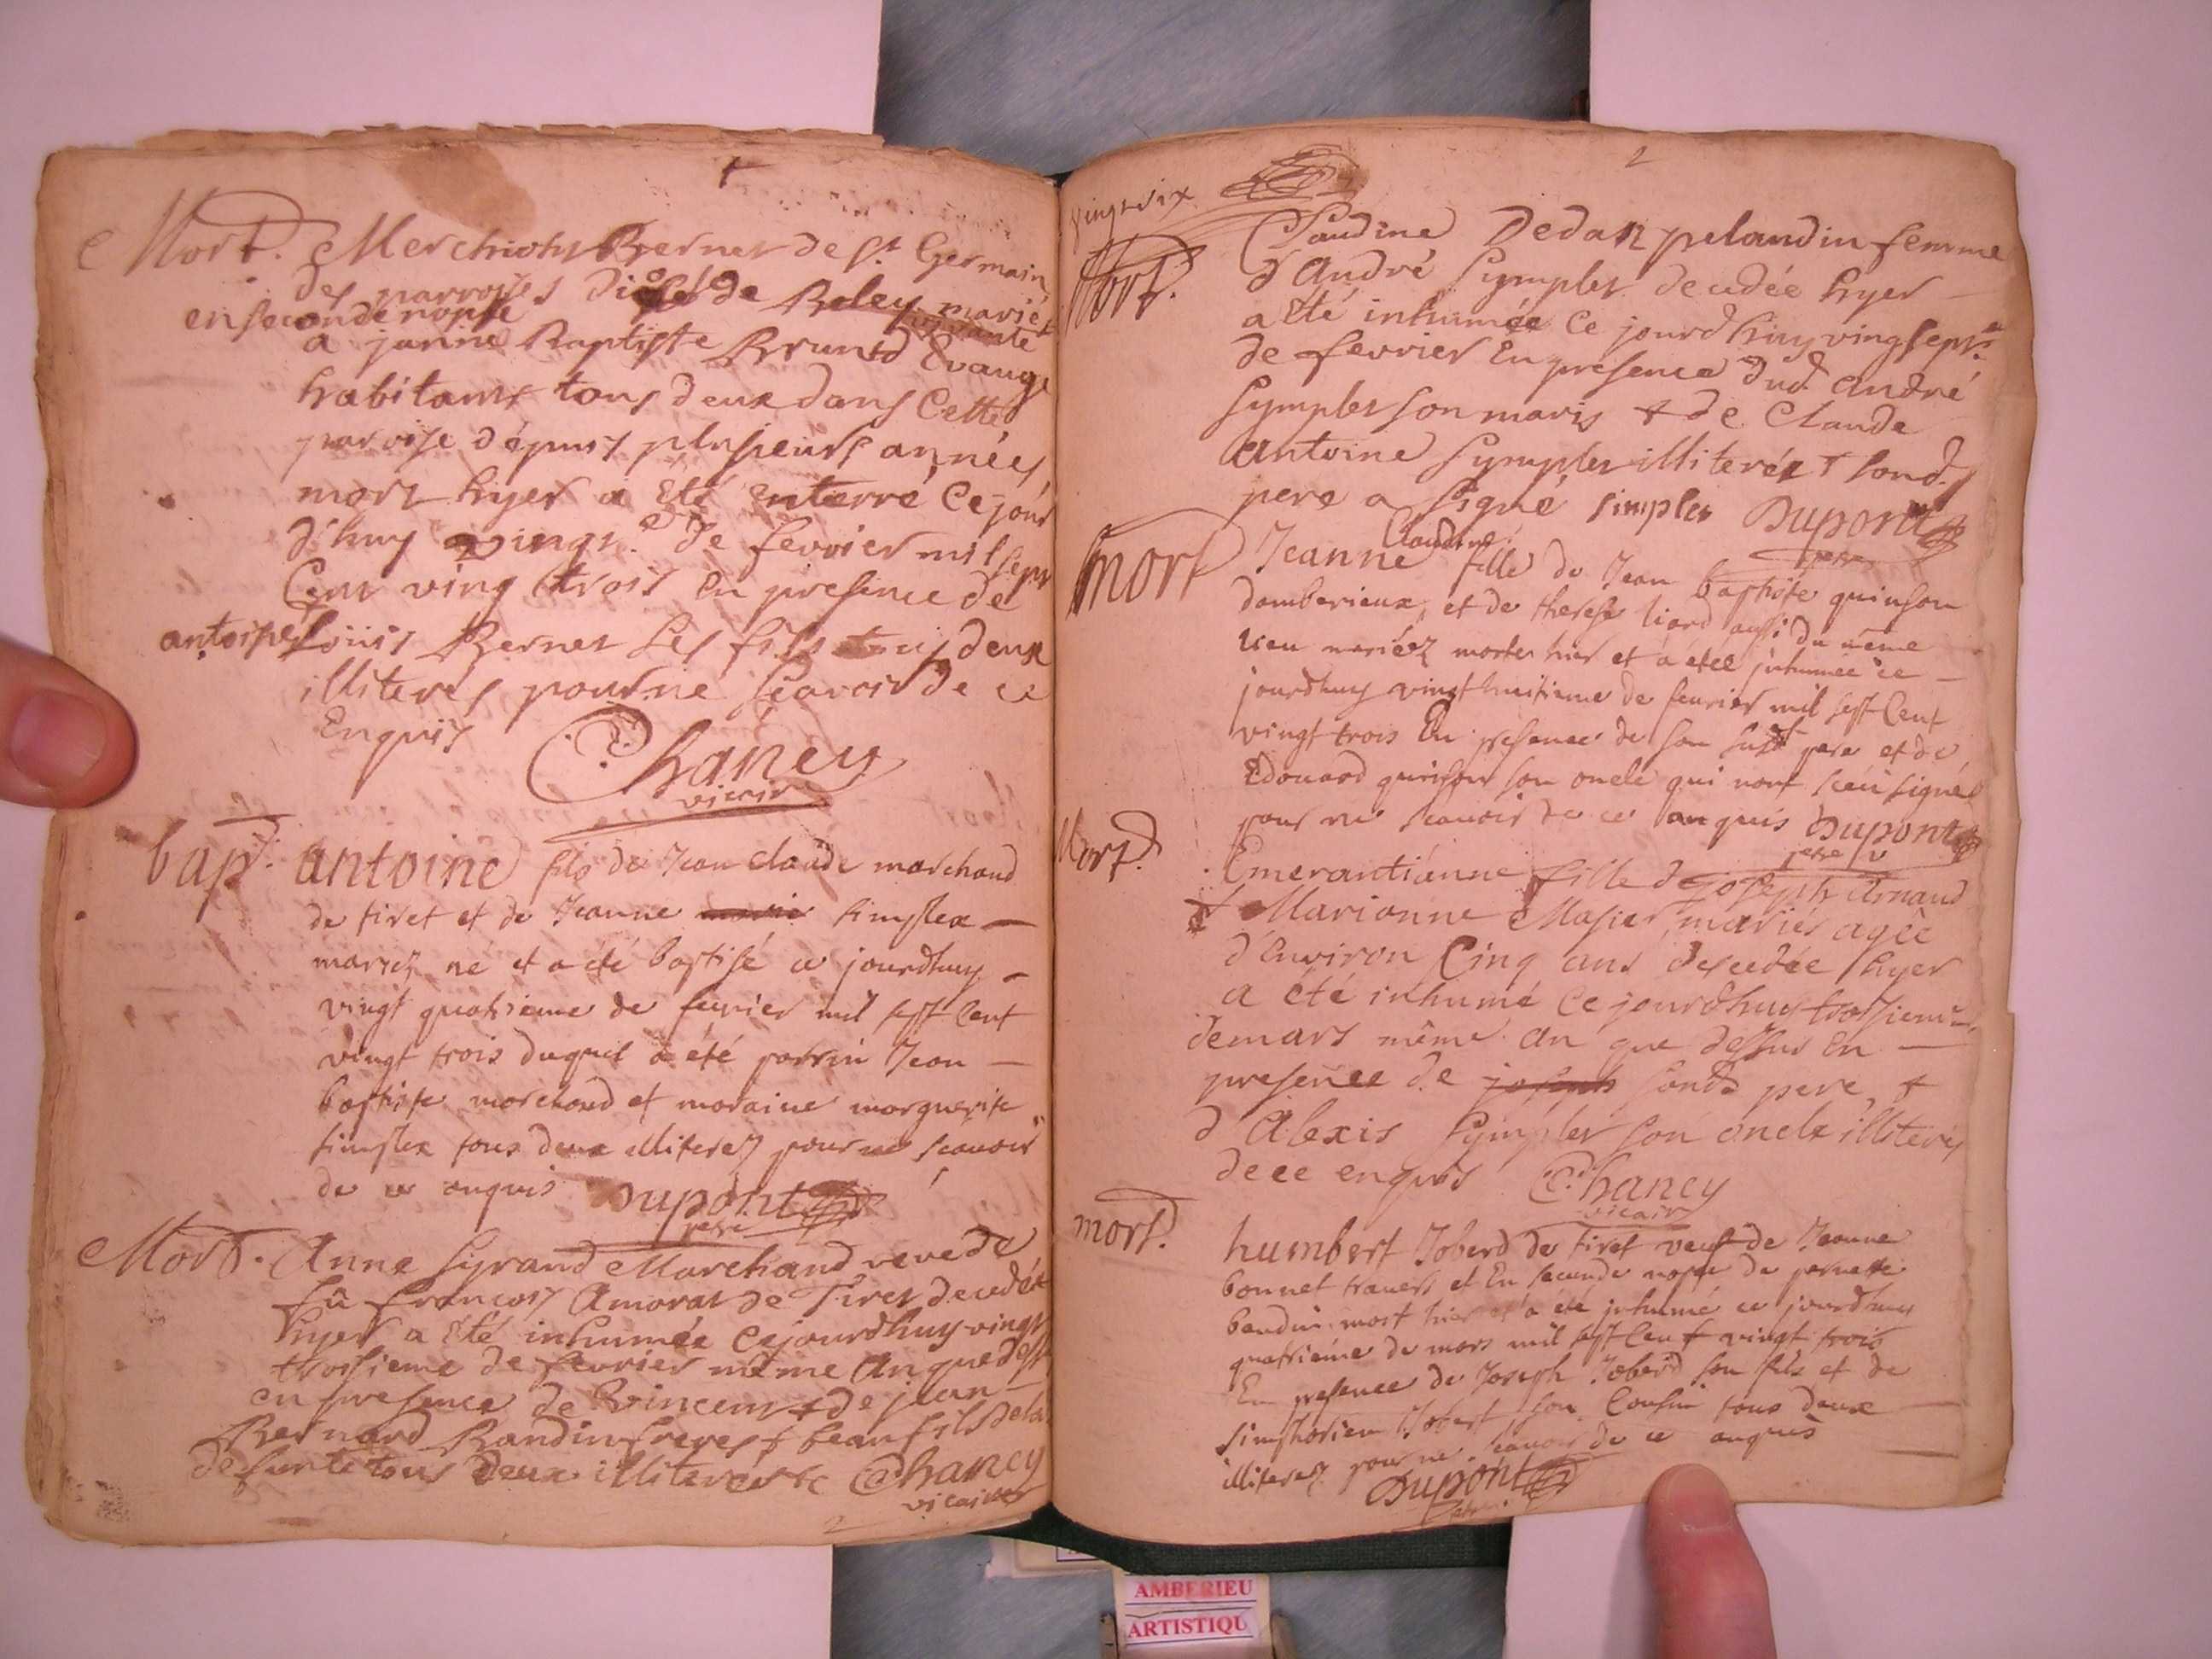 Mort. Merchioty Bernet de St Germain
des parroisses de Beley marié
en seconde nopse
a janne Baptiste Brund
habitants tous deux dans Cette
paroise dépuis plusieurs années
mort hyer a Eté enterré Ce jour
d'huy vingt.e de fevrier mil sept
Cent ving trois En presence de
antoine Louis Bernet Ses fils tous deux
illiterés pour ne scavoir de ce
Enquis
Chaney
vicair
bap. antoine fils de Jean claude marchand
de tiret et de Jeanne simplex
mariez né et a été baptisé ce jourdhuy
vingt quatrieme de feurier mil sept Cent
vingt trois duquel a été parrin Jean
baptiste marchand et maraine marguerite
simplex tous deux illiterez pour ne scauoir
de ce anquis Dupont
petre
Mort. Anne Syrand Marchand veve de
fû francois Amorat de Tiret decedée
hyer a Eté inhumée Cejourdhuy vingt
troisieme de fevrier même An que dess
en presence de Vincent & de jean
Bernard Bandin freres & beau fils de la
defunte tous deux illiterés Chaney
vicaire
2
2
vingt six
Mort. Claudine Dedan pelandin femme
d'André Symplex decedée hyer
a Eté inhumée Ce jourdhuy ving sept.e
de fevrier En presence dud. André
Symplex son maris & de Claude
Antoine Symplex illiteréz & sond.
pere a signé simplex Dupont
petre
Claudine
mort Jeanne fille de Jean baptiste quinson
damberieux, et de therese liard aussi du même
lieu mariéz morte hier et a étée inhumée ce
jourdhuy vingt huitieme de feurier mil sept Cent
vingt trois En presence de son susd pere et de
Edouard quinson son oncle qui nont sceu signé
pour ne scauoir de ce anquis Dupont
petre
Mort. Emerantiénne fille de joseph Arnaud
& Marionne Masier mariés agée
d'Environ Cinq ans decedée hyer
a été inhumé Ce jourdhuy troisieme
de mars même an que dessus En
presence de sond pere &
d'Alexis Sympler son oncle illiterés
de ce enquis Chaney
vicair
mort. humbert Joberd de tiret veuf de Jeanne
bonnet travers et En seconde nopse de pernette
baudin mort hier et a été inhumé ce jourdhuy
quatriéme de mars mil sept Cent vingt trois
En presence de Joseph Joberd son fils et de
simphorien Jobert son Cousin tous deux
illiterez pour ne scauoir de ce anquis
Dupont
petre
AMBERIEU
ARTISTIQU